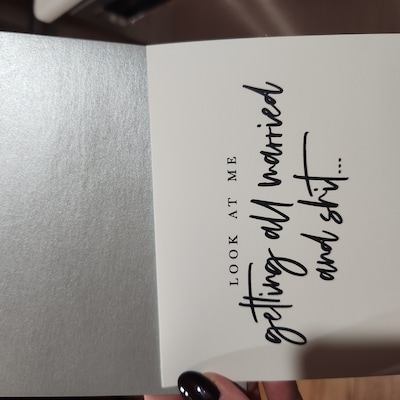 LOOK AT ME
getting all married
and shit...